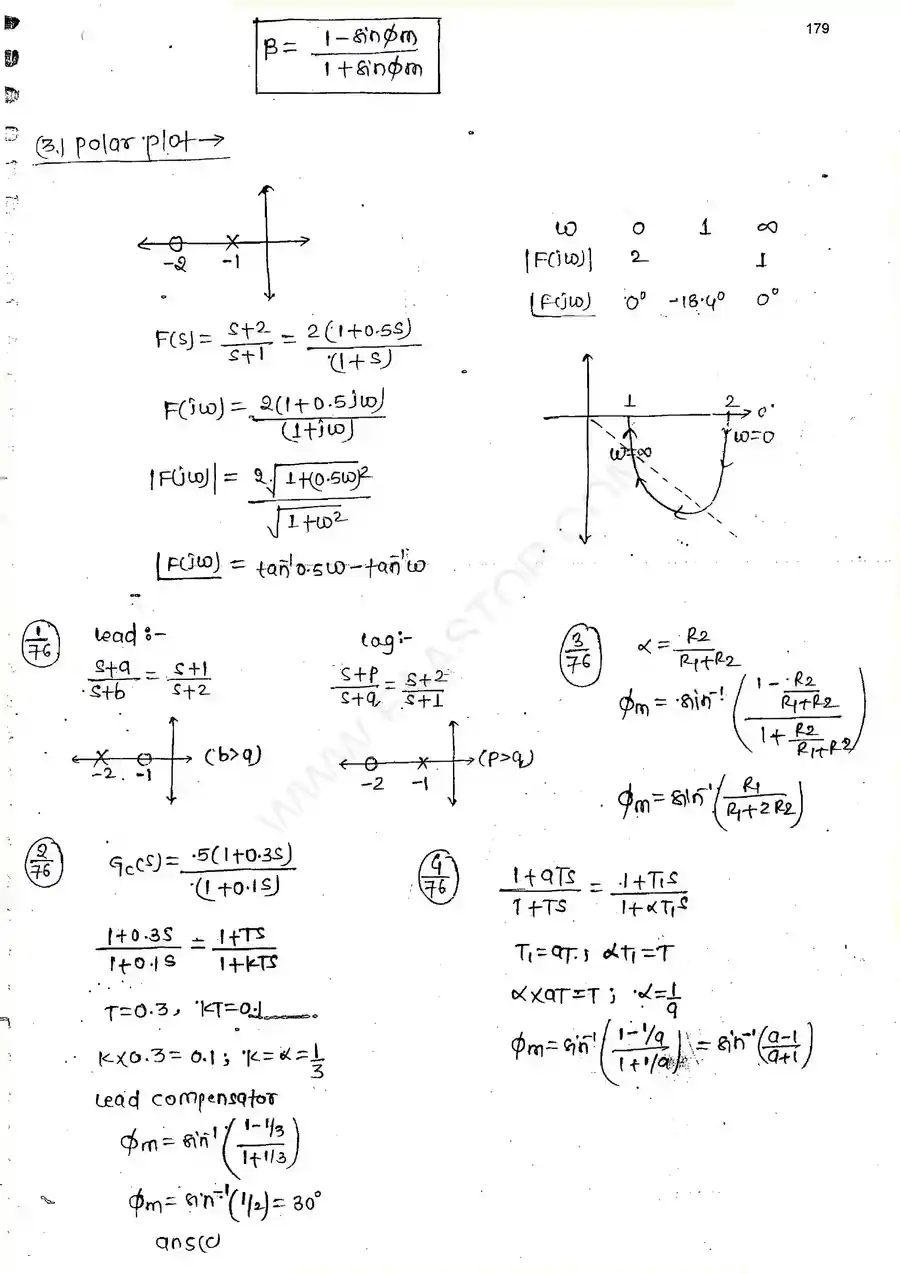 179
β = (1 - sinφm) / (1 + sinφm)
(3.) Polar plot →
-2 -1
F(s) = (s+2)/(s+1) = 2(1+0.5s)/(1+s)
F(jω) = 2(1+0.5jω)/(1+jω)
|F(jω)| = 2√(1+(0.5ω)²) / √(1+ω²)
∠F(jω) = tan⁻¹0.5ω - tan⁻¹ω
ω 0 1 ∞
|F(jω)| 2 1
∠F(jω) 0° -18.4° 0°
1 2 0°
ω=∞ ω=0
1/76
Lead :-
(s+a)/(s+b) = (s+1)/(s+2)
-2 -1 (b>a)
Lag :-
(s+p)/(s+q) = (s+2)/(s+1)
-2 -1 (p>q)
3/76
α = R2/(R1+R2)
φm = sin⁻¹((1 - R2/(R1+R2))/(1 + R2/(R1+R2)))
φm = sin⁻¹(R1/(R1+2R2))
2/76
Gc(s) = .5(1+0.3s)/(1+0.1s)
(1+0.3s)/(1+0.1s) = (1+Ts)/(1+kTs)
T=0.3, kT=0.1
k×0.3 = 0.1; k=α=1/3
Lead compensator
φm = sin⁻¹((1-1/3)/(1+1/3))
φm = sin⁻¹(1/2) = 30°
ans(c)
4/76
(1+aTs)/(1+Ts) = (1+T1s)/(1+αT1s)
T1=aT; αT1=T
α×aT=T; α=1/a
φm = sin⁻¹((1-1/a)/(1+1/a)) = sin⁻¹((a-1)/(a+1))